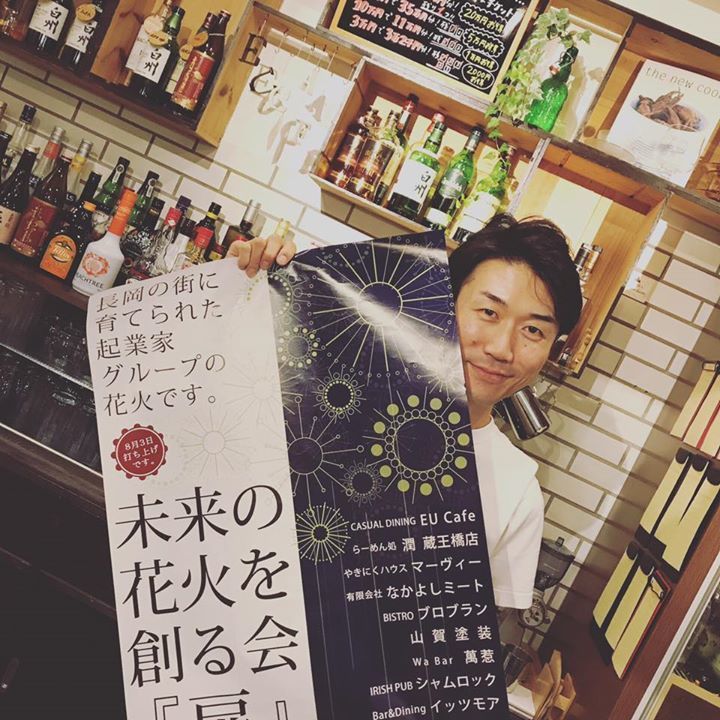 長岡の街に
育てられた
起業家
グループの
花火です。
8月3日
打ち上げ
です。
未来の
花火を
創る会
『扉』
CASUAL DINING EU Cafe
らーめん処 潤 蔵王橋店
やきにくハウス マーヴィー
有限会社 なかよしミート
BISTRO ブロブラン
山賀塗装
Wa Bar 萬惹
IRISH PUB シャムロック
Bar&Dining イッツモア
the new coo
白州
白州
白州